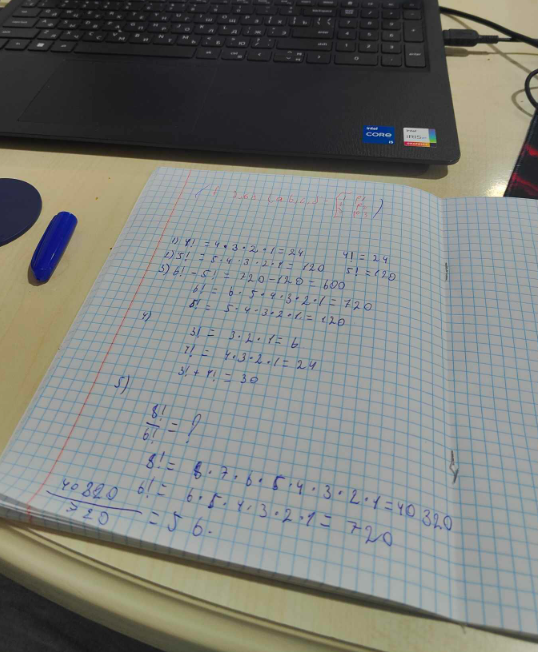 intel
CORE
i3
intel
1) 4! = 4·3·2·1=24 4! = 24
2) 5! = 5·4·3·2·1= 120 5! = 120
3) 6! - 5! = 720-120= 600
6! = 6·5·4·3·2·1= 720
5! = 5·4·3·2·1= 120
4)
3! = 3·2·1= 6
4! = 4·3·2·1= 24
3! + 4! = 30
5)
8!/6! = ?
8! = 8·7·6·5·4·3·2·1=40 320
6! = 6·5·4·3·2·1= 720
40320/720 = 56.